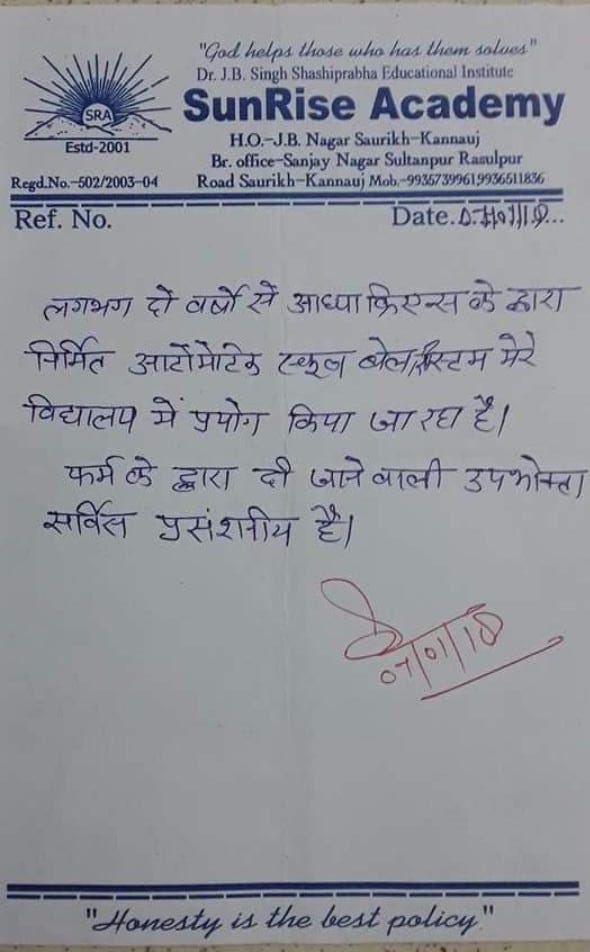 "God helps those who has them solves"
Dr. J.B. Singh Shashiprabha Educational Institute
SunRise Academy
SRA
Estd-2001
H.O.-J.B. Nagar Saurikh-Kannauj
Br. office-Sanjay Nagar Sultanpur Rasulpur
Regd.No.-502/2003-04
Road Saurikh-Kannauj Mob.-9936739961,9936511836
Ref. No.
Date.
लगभग दो वर्षो से आध्या क्रिएन्स के द्वारा
निर्मित आटोमेटिक स्कूल बेल सिस्टम मेरे
विद्यालय में प्रयोग किया जा रहा है।
फर्म के द्वारा दी जाने वाली उपभोक्ता
सर्विस प्रसंशनीय है।
07/01/18
"Honesty is the best policy"